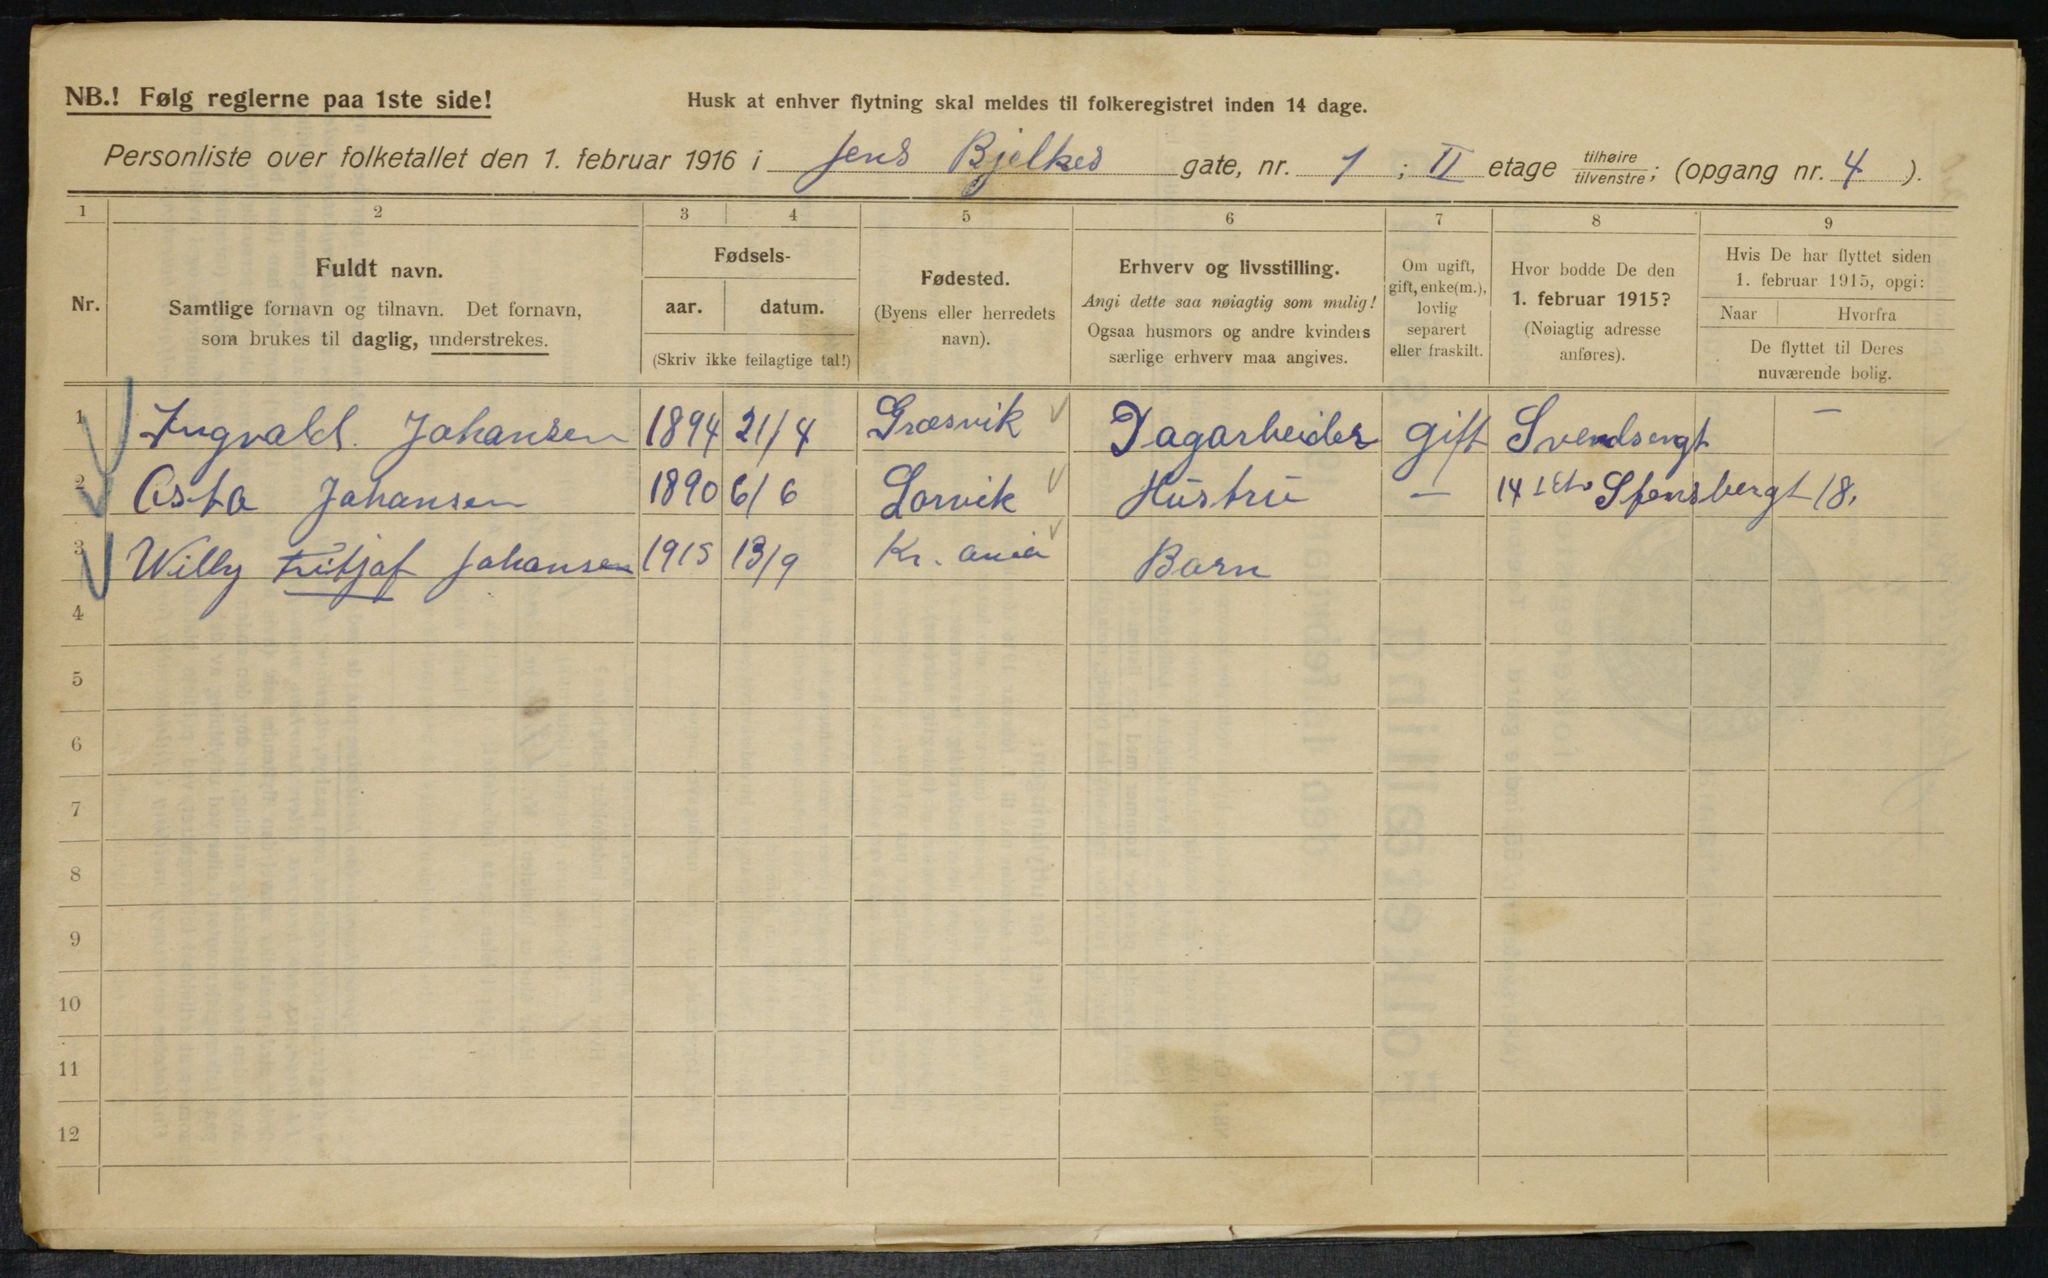 NB.! Følg reglerne paa 1ste side!
Husk at enhver flytning skal meldes til folkeregistret inden 14 dage.
Personliste over folketallet den 1. februar 1916 i Jens Bjelkes gate, nr. 1 ; II etage tilhøire / tilvenstre; (opgang nr. 4 ).
1 2 3 4 5 6 7 8 9
Nr.
Fuldt navn.
Samtlige fornavn og tilnavn. Det fornavn,
som brukes til daglig, understrekes.
Fødsels-
aar. datum.
(Skriv ikke feilagtige tal!)
Fødested.
(Byens eller herredets
navn).
Erhverv og livsstilling.
Angi dette saa nøiagtig som mulig!
Ogsaa husmors og andre kvinders
særlige erhverv maa angives.
Om ugift,
gift, enke(m.),
lovlig
separert
eller fraskilt.
Hvor bodde De den
1. februar 1915?
(Nøiagtig adresse
anføres).
Hvis De har flyttet siden
1. februar 1915, opgi:
Naar Hvorfra
De flyttet til Deres
nuværende bolig.
1 Ingvald. Johansen 1894 21/4 Græsvik Dagarbeider gift Svendsengt —
2 Asta Johansen 1890 6/6 Larvik Hustru — 14 Stensbergt 18.
3 Willy Fritjof Johansen 1915 13/9 Kr. ania Barn
4
5
6
7
8
9
10
11
12